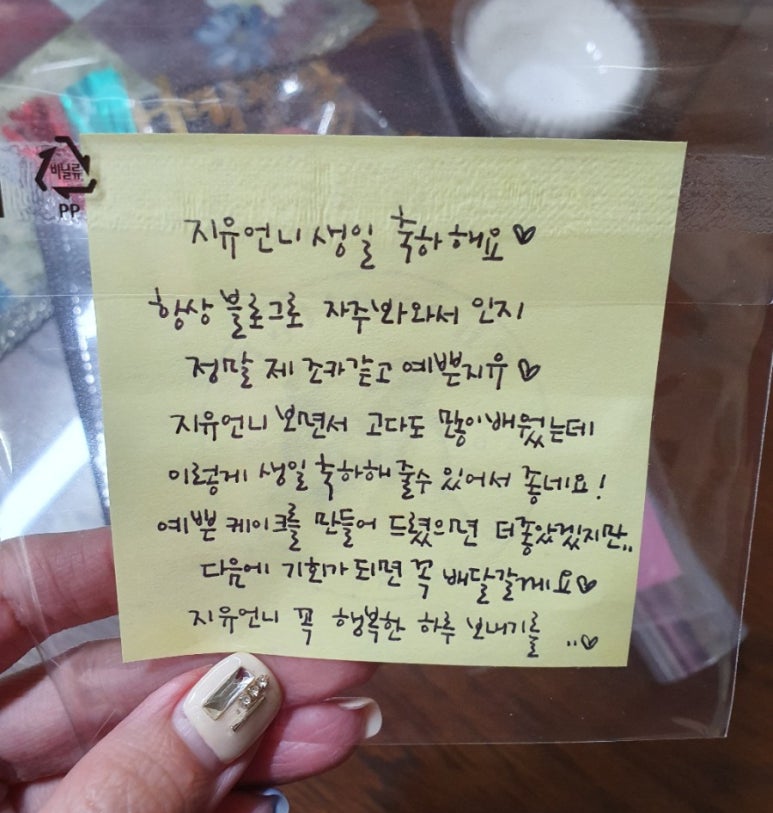 비닐류
PP
지유언니 생일 축하해요♡
항상 블로그로 자주봐와서 인지
정말 제 조카같고 예쁜지유♡
지유언니 보면서 고다도 많이배웠는데
이렇게 생일 축하해 줄수 있어서 좋네요!
예쁜 케이크를 만들어 드렸으면 더좋았겠지만..
다음에 기회가 되면 꼭 배달갈게요♡
지유언니 꼭 행복한 하루 보내기를 ..♡